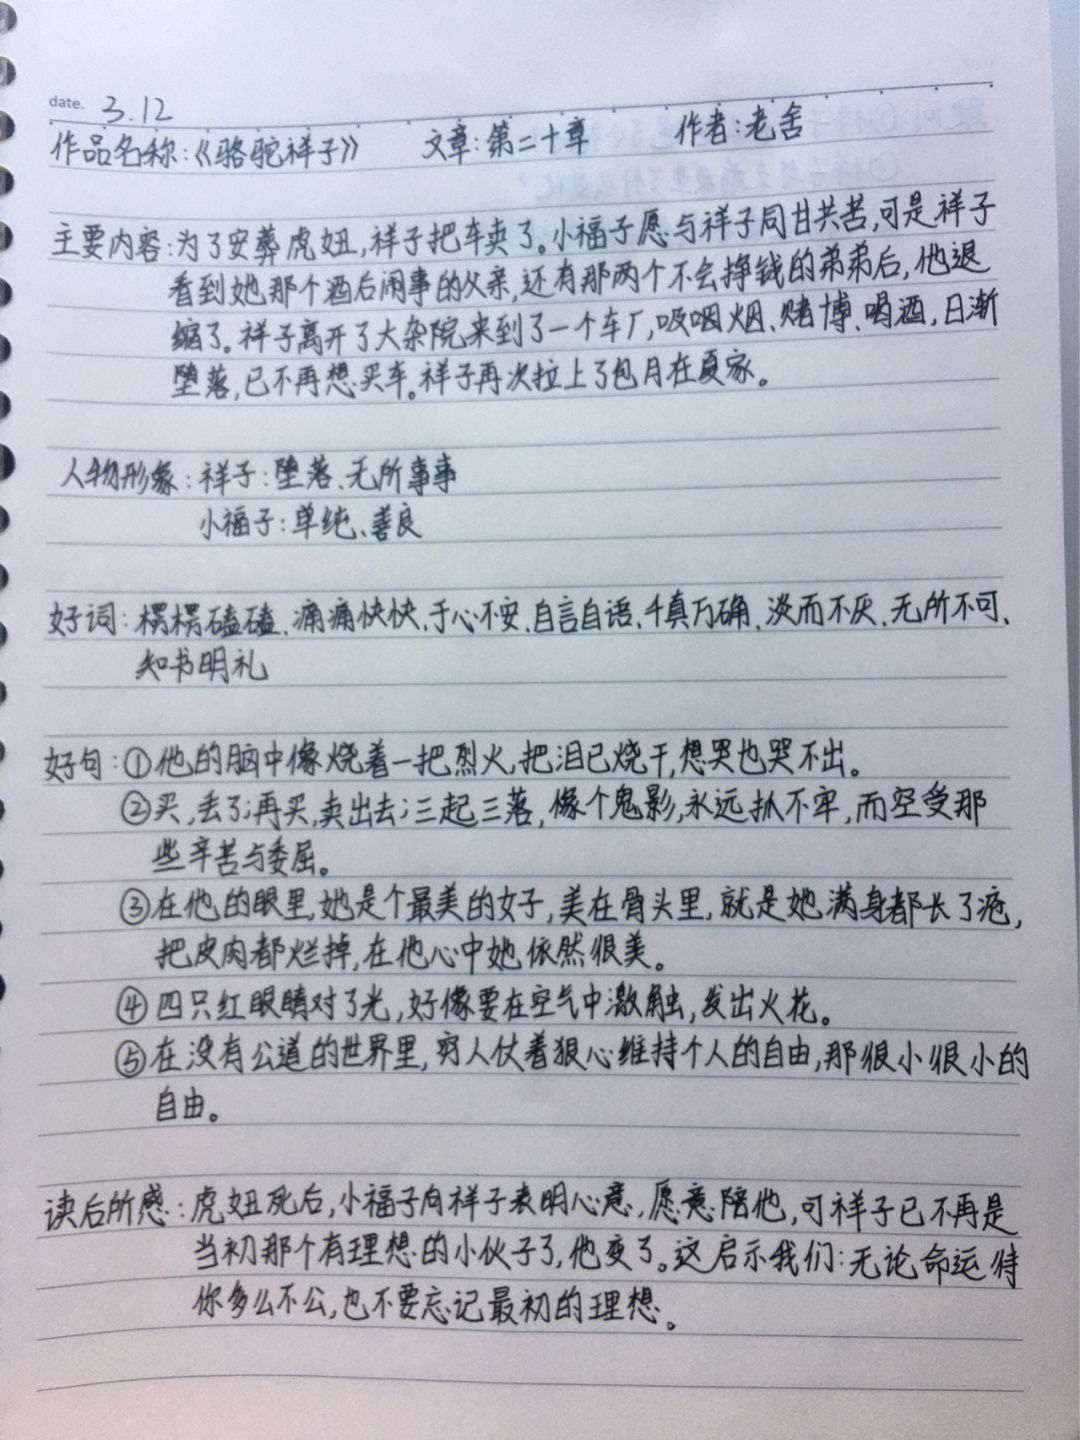 date. 3.12
作品名称:《骆驼祥子》 文章:第二十章 作者:老舍
主要内容:为了安葬虎妞,祥子把车卖了。小福子愿与祥子同甘共苦,可是祥子
看到她那个酒后闹事的父亲,还有那两个不会挣钱的弟弟后,他退
缩了。祥子离开了大杂院来到了一个车厂,吸咽烟、赌博、喝酒,日渐
堕落,已不再想买车。祥子再次拉上了包月在夏家。
人物形象:祥子:堕落、无所事事
小福子:单纯、善良
好词:楞楞磕磕、痛痛快快、于心不安、自言自语、千真万确、淡而不厌、无所不可、
知书明礼
好句:①他的脑中像烧着一把烈火,把泪已烧干,想哭也哭不出。
②买,丢了;再买,卖出去;三起三落,像个鬼影,永远抓不牢,而空受那
些辛苦与委屈。
③在他的眼里,她是个最美的女子,美在骨头里,就是她满身都长了疮,
把皮肉都烂掉,在他心中她依然很美。
④四只红眼睛对了光,好像要在空气中激触,发出火花。
⑤在没有公道的世界里,穷人仗着狠心维持个人的自由,那很小很小的
自由。
读后所感:虎妞死后,小福子向祥子表明心意,愿意陪他,可祥子已不再是
当初那个有理想的小伙子了,他变了。这启示我们:无论命运待
你多么不公,也不要忘记最初的理想。